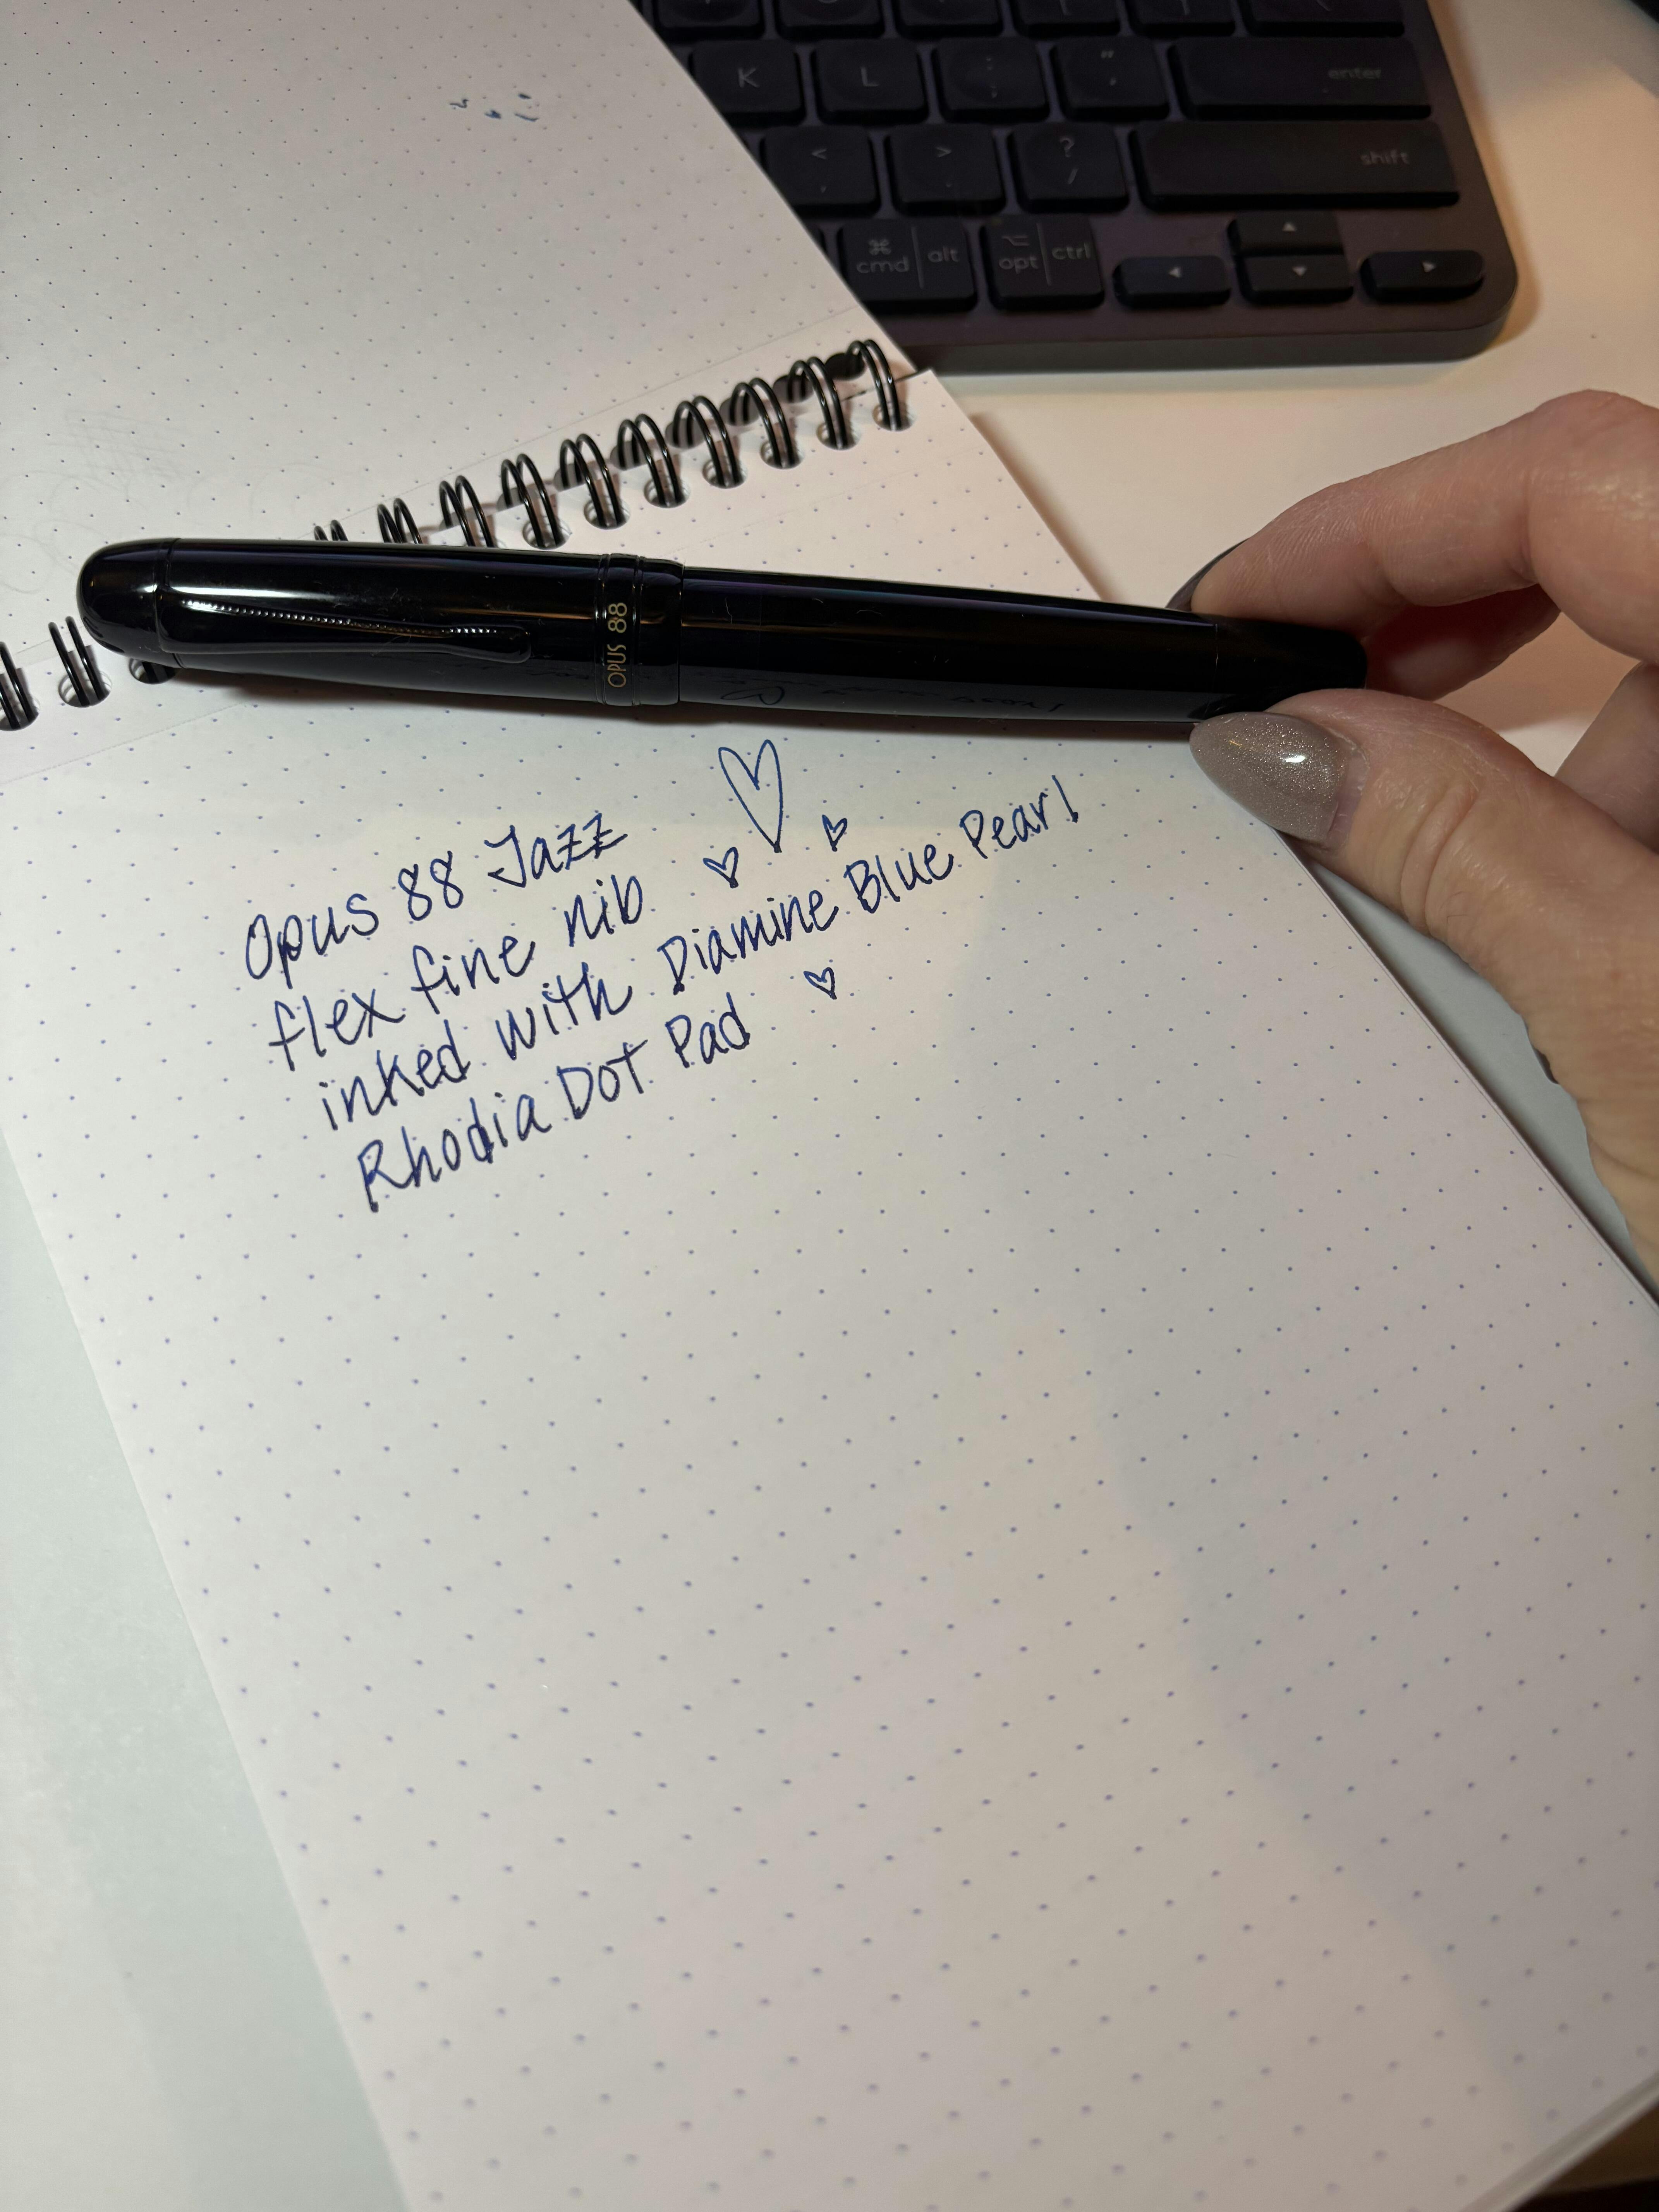 K L : ; " ' enter
< , > . ? / shift
⌘ cmd alt ⌥ opt ctrl
OPUS 88
Opus 88 Jazz
flex fine nib
inked with Diamine Blue Pearl
Rhodia Dot Pad